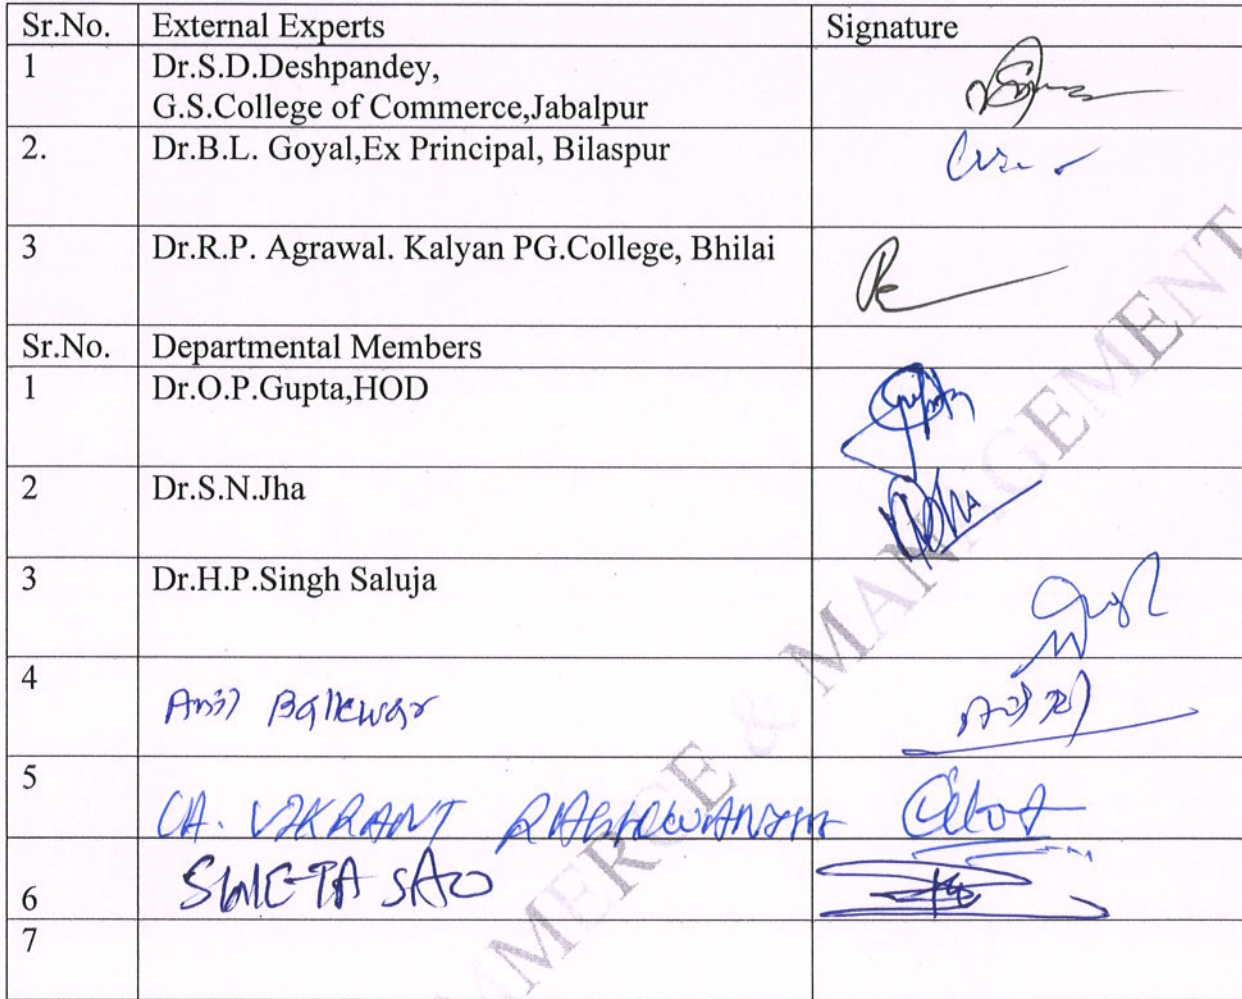 Sr.No. External Experts Signature
1 Dr.S.D.Deshpandey,
G.S.College of Commerce,Jabalpur
2. Dr.B.L. Goyal,Ex Principal, Bilaspur
3 Dr.R.P. Agrawal. Kalyan PG.College, Bhilai
Sr.No. Departmental Members
1 Dr.O.P.Gupta,HOD
2 Dr.S.N.Jha
3 Dr.H.P.Singh Saluja
4 Anil
5 CA. VIKRANT
6 SWETA SAO
7
MERCE & MANAGEMENT